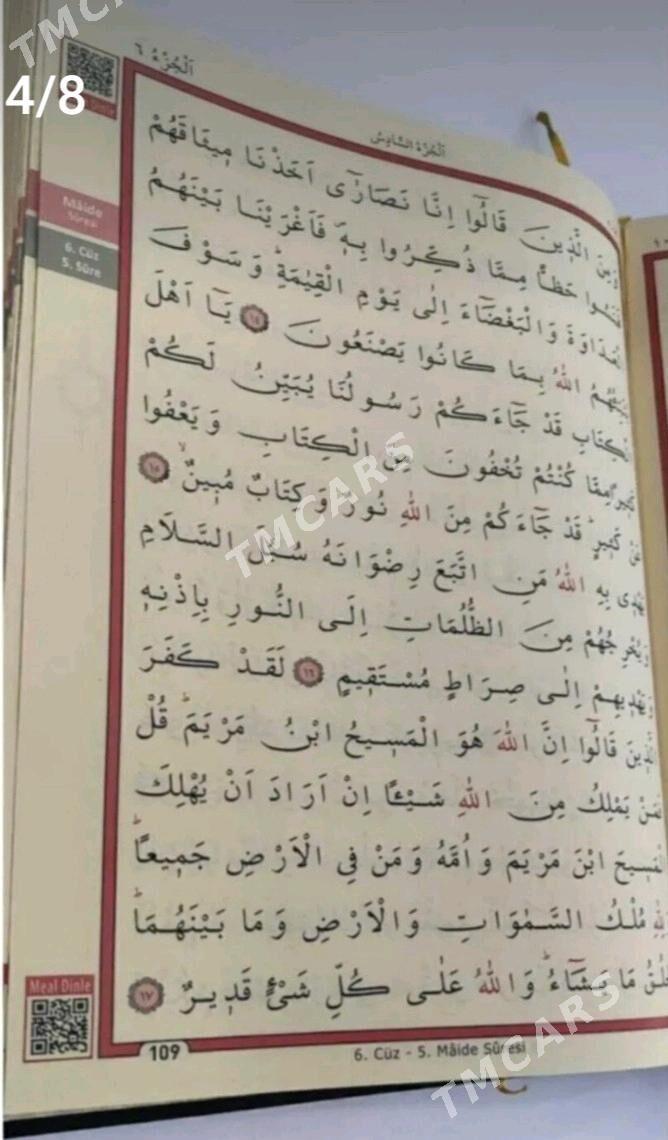 TMCARS
4/8
اَلْجُزْءُ ٦
Dinle
اَلْجُزْءُ السَّادِسُ
Mâide
Sûresi
6. Cüz
5. Sûre
الَّذ۪ينَ قَالُٓوا اِنَّا نَصَارٰٓى اَخَذْنَا م۪يثَاقَهُمْ
حَظًّا مِمَّا ذُكِّرُوا بِه۪ۖ فَاَغْرَيْنَا بَيْنَهُمُ
وَالْبَغْضَٓاءَ اِلٰى يَوْمِ الْقِيٰمَةِۜ وَسَوْفَ
اللّٰهُ بِمَا كَانُوا يَصْنَعُونَ ١٤ يَٓا اَهْلَ
قَدْ جَٓاءَكُمْ رَسُولُنَا يُبَيِّنُ لَكُمْ
مِمَّا كُنْتُمْ تُخْفُونَ مِنَ الْكِتَابِ وَيَعْفُوا
قَدْ جَٓاءَكُمْ مِنَ اللّٰهِ نُورٌ وَكِتَابٌ مُب۪ينٌۙ ١٥
بِهِ اللّٰهُ مَنِ اتَّبَعَ رِضْوَانَهُ سُبُلَ السَّلَامِ
مِنَ الظُّلُمَاتِ اِلَى النُّورِ بِاِذْنِه۪
وَيَهْد۪يهِمْ اِلٰى صِرَاطٍ مُسْتَق۪يمٍ ١٦ لَقَدْ كَفَرَ
الَّذ۪ينَ قَالُٓوا اِنَّ اللّٰهَ هُوَ الْمَس۪يحُ ابْنُ مَرْيَمَۜ قُلْ
فَمَنْ يَمْلِكُ مِنَ اللّٰهِ شَيْـًٔا اِنْ اَرَادَ اَنْ يُهْلِكَ
الْمَس۪يحَ ابْنَ مَرْيَمَ وَاُمَّهُ وَمَنْ فِي الْاَرْضِ جَم۪يعًاۜ
مُلْكُ السَّمٰوَاتِ وَالْاَرْضِ وَمَا بَيْنَهُمَاۜ
مَا يَشَٓاءُۜ وَاللّٰهُ عَلٰى كُلِّ شَيْءٍ قَد۪يرٌ ١٧
TMCARS
Meal Dinle
109
6. Cüz - 5. Mâide Sûresi
TMCARS